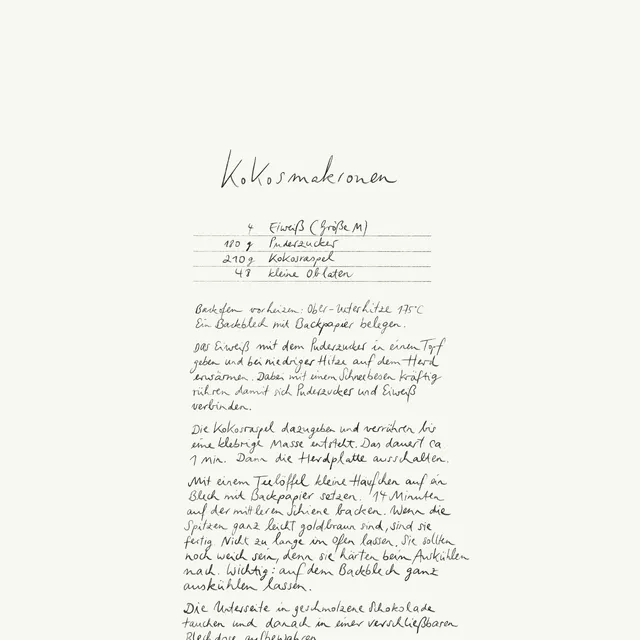 Kokosmakronen
4 Eiweiß (Größe M)
180 g Puderzucker
210 g Kokosraspel
48 kleine Oblaten
Backofen vorheizen: Ober-Unterhitze 175°C
Ein Backblech mit Backpapier belegen.
Das Eiweiß mit dem Puderzucker in einen Topf
geben und bei niedriger Hitze auf dem Herd
erwärmen. Dabei mit einem Schneebesen kräftig
rühren damit sich Puderzucker und Eiweiß
verbinden.
Die Kokosraspel dazugeben und verrühren bis
eine klebrige Masse entsteht. Das dauert ca
1 Min. Dann die Herdplatte ausschalten.
Mit einem Teelöffel kleine Häufchen auf ein
Blech mit Backpapier setzen. 14 Minuten
auf der mittleren Schiene backen. Wenn die
Spitzen ganz leicht goldbraun sind, sind sie
fertig. Nicht zu lange im Ofen lassen, Sie sollten
noch weich sein, denn sie härten beim Auskühlen
nach. Wichtig: auf dem Backblech ganz
auskühlen lassen.
Die Unterseite in geschmolzene Schokolade
tauchen und danach in einer verschließbaren
Blechdose aufbewahren